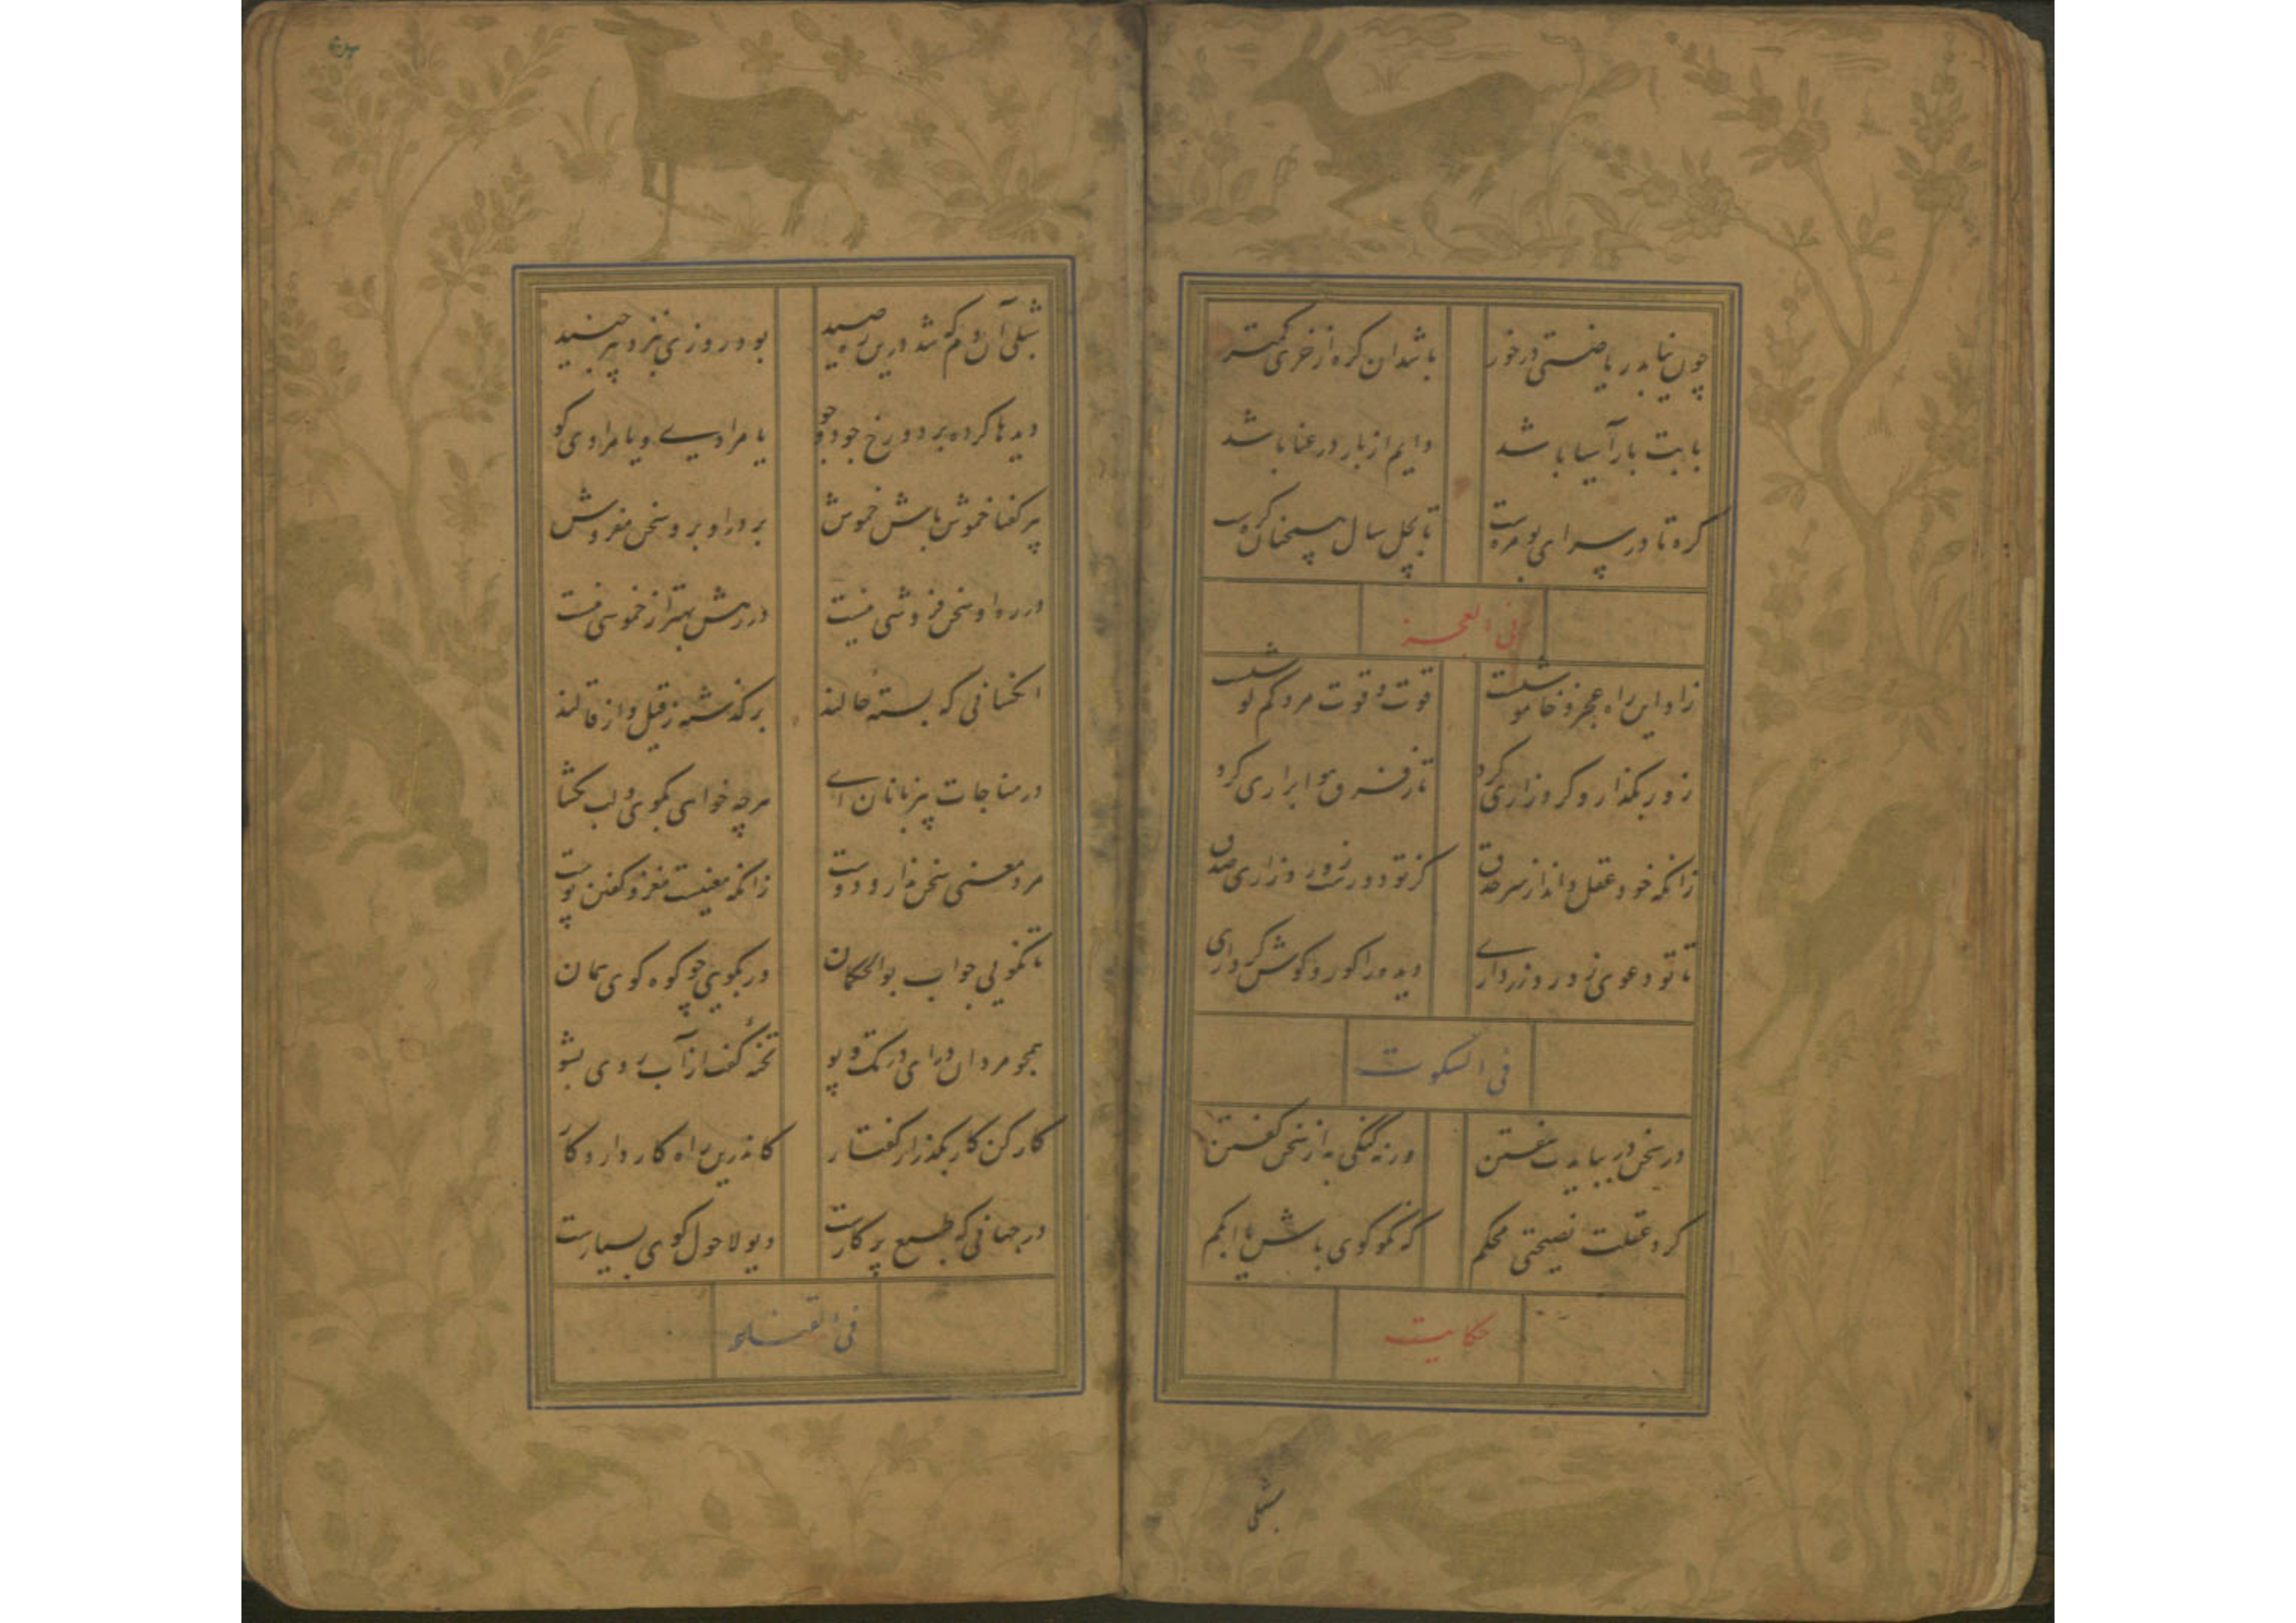 چون نیابد ریاضتی در خور باشد آن کره از خری کمتر
بابت بار آسیا باشد دایم از بار در عنا باشد
کره تا در سرای بومره است تا بچل سال همچنان کره است
فی العجز
زاد این راه عجز و خاموشیست قوت و قوت مرد کم
زور بگذار و گرد زاری گرد تا ز فرق هوا برآری گرد
زانکه خود عقل داند از سر حذق کز تو دورست زور و زاری صدق
تا تو دعوی زور و زر داری دیده را کور و گوش کر داری
فی السکوت
در سخن در ببایدت سفتن ورنه گنگی به از سخن گفتن
کرد عقلت نصیحتی محکم که نکو گوی باش یا ابکم
حکایت
شبلی
شبلی آن دم که شد درین ره صید بود روزی بنزد پیر جنید
دیدها کرده بر دو رخ جو جو یا مرادی و یا مرادی گو
پیر گفتا خموش باش خموش بر در او برو سخن مفروش
در ره او سخن فروشی نیست در رهش بهتر از خموشی نیست
آنکسانی که بسته حالند برگذشته ز قیل و از قالند
در مناجات بیزبانان آی هرچه خواهی بگوی و لب مگشای
مرد معنی سخن ندارد دوست زانکه معنیست مغز و گفتن پوست
تا نگویی جواب بوالحکمان ور بگویی چو کوه گوی همان
همچو مردان درآی در تک و پو تخته گفت از آب روی بشو
کار کن کار بگذر از گفتار کاندرین راه کار دارد کار
در جهانی که طبع پر کارست دیو لاحول گوی بسیارست